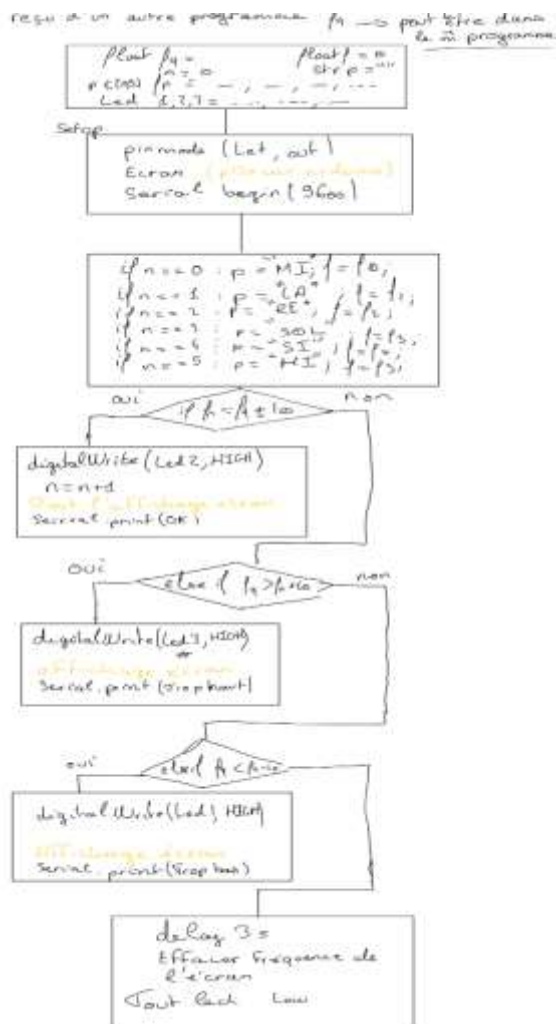 reçu d'un autre programme f9 → peut être dans
le m̂ programme
float f9 =
float f = 0
n = 0
str p = ""
Led 1,2,3 =
Setup
pinmode (Led, out)
Ecran
Serial begin (9600)
if n == 0 : p = "MI"; f = f0;
if n == 1 : p = "LA"; f = f1;
if n == 2 : p = "RE"; f = f2;
if n == 3 : p = "SOL"; f = f3;
if n == 4 : p = "SI"; f = f4;
if n == 5 : p = "MI"; f = f5;
oui
non
digitalWrite (Led 2, HIGH)
n = n+1
l'affichage écran
Serial print (OK)
oui
non
else if
digitalWrite (Led 3, HIGH)
affichage écran
Serial print (Trop haut)
oui
else if
digitalWrite (Led 1, HIGH)
Affichage écran
Serial print (Trop bas)
delay 3s
Effacer fréquence de
l'écran
Tout led Low